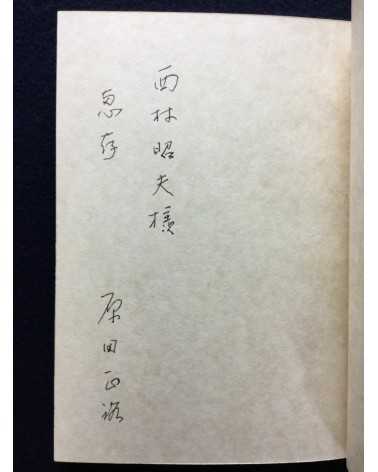 西林昭夫様
恵存
原田正路